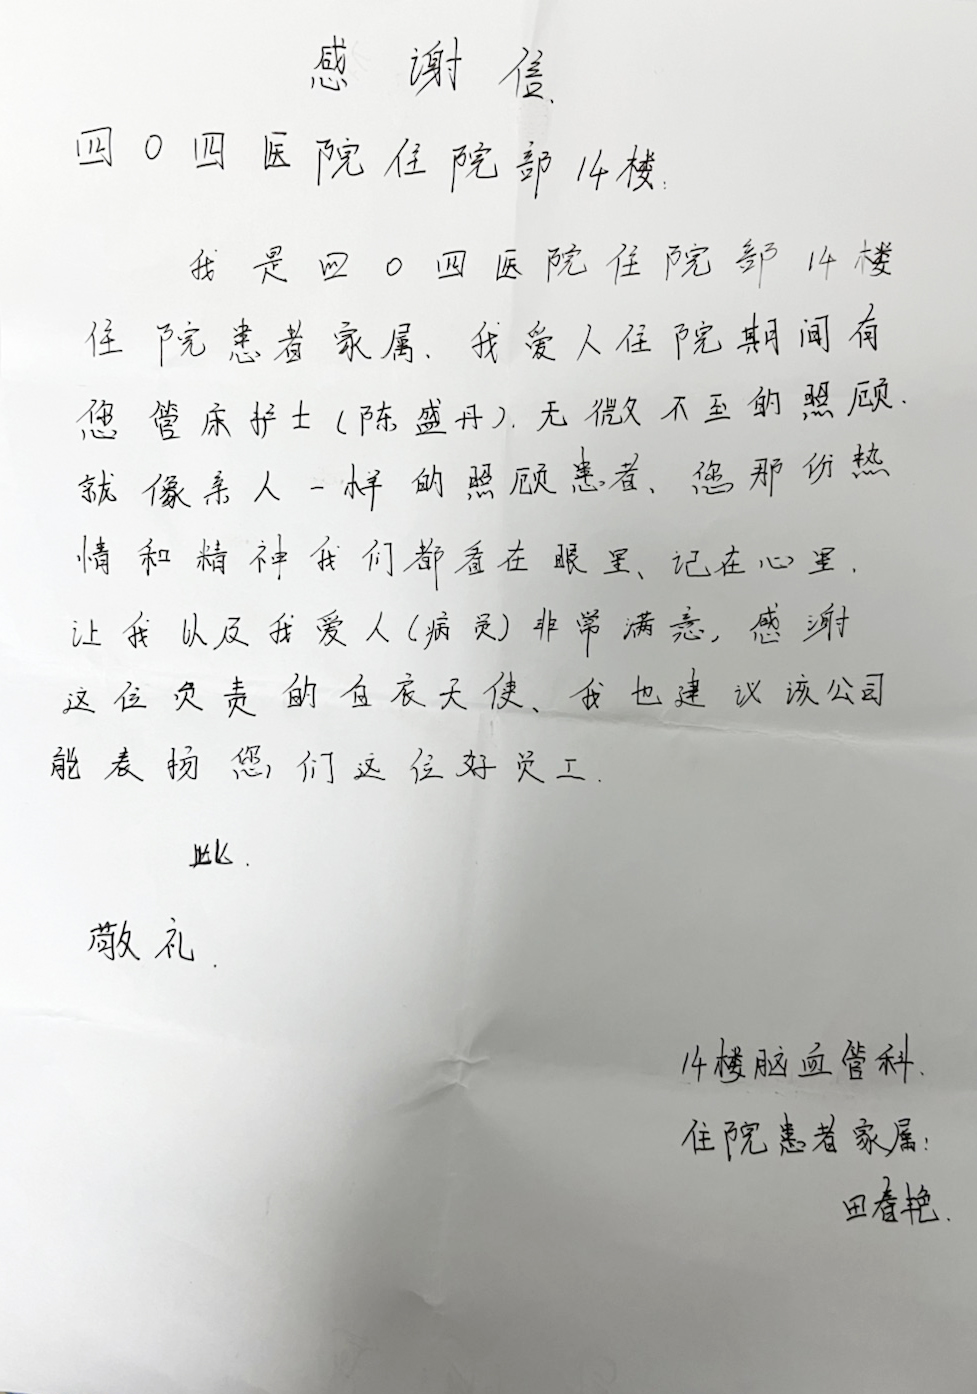 感谢信.
四0四医院住院部14楼:
我是四0四医院住院部14楼
住院患者家属.我爱人住院期间有
您管床护士(陈盛丹).无微不至的照顾.
就像亲人一样的照顾患者、您那份热
情和精神我们都看在眼里、记在心里.
让我以及我爱人(病员)非常满意,感谢
这位负责的白衣天使、我也建议该公司
能表扬您们这位好员工.
此.
敬礼.
14楼脑血管科.
住院患者家属:
田春艳.